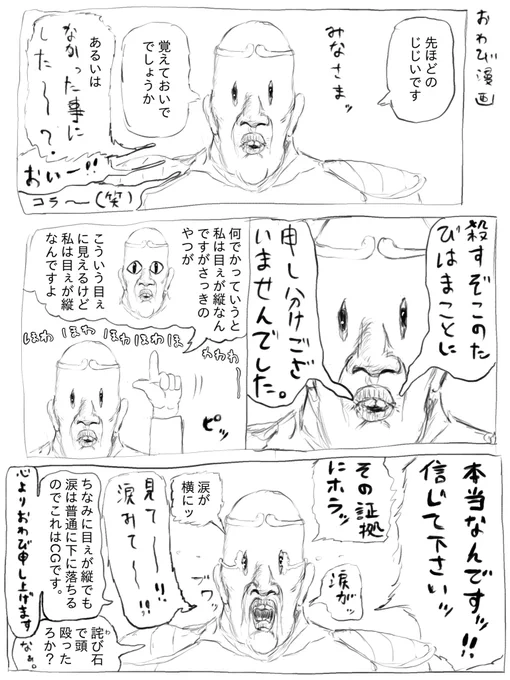 おわび漫画
先ほどの
じじいです
みなさまッ
覚えておいで
でしょうか
あるいは
なかった事に
した〜？
おい〜!!
コラ〜(笑)
殺すぞこのた
びはまことに
申し分けござ
いませんでした。
何でかっていうと
私は目ぇが縦なん
ですがさっきの
やつが
こういう目ぇ
に見えるけど
私は目ぇが縦
なんですよ
ほわ ほわ ほわほわほ
わわわ〜
ピッ
本当なんですッ!!
信じて下さいッ
その証拠
にホラッ
涙がッ
涙が
横にッ
ブワッ
見て〜!!
涙みて〜!!
ちなみに目ぇが縦でも
涙は普通に下に落ちる
のでこれはCGです。
心よりおわび申し上げます
詫び石
わ
で頭
殴った
ろか？
なぁ。